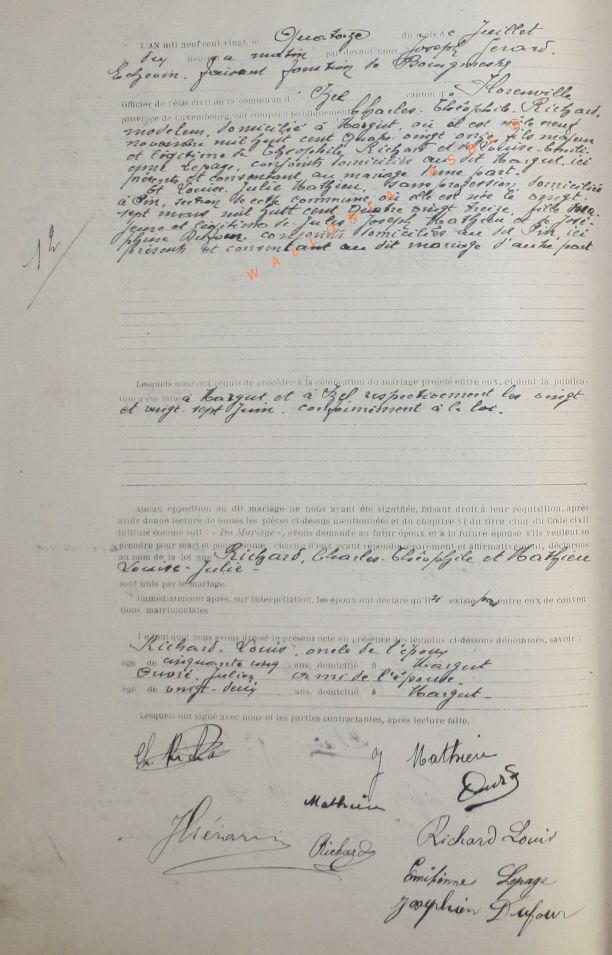 L'AN mil neuf cent vingt, le Quatorze du mois de Juillet
dix heures du matin par devant nous Joseph Gérard,
Echevin faisant fonction de Bourgmestre
Officier de l'état civil de la commune d' Izel canton de Florenville
province de Luxembourg, ont comparu publiquement Charles-Théophile Richard,
modeleur, domicilié à Margut, où il est né le neuf
novembre mil huit cent quatre vingt onze, fils majeur
et légitime de Théophile Richard et de Louise-Emili-
enne Lepage, conjoints domiciliés au dit Margut, ici
présents et consentant au mariage d'une part.
Et Louise-Julie Mathieu, sans profession, domiciliée
à Pin, section de cette commune, où elle est née le vingt
sept mars mil huit cent quatre vingt treize, fille ma-
jeure et légitime de Jules Joseph Mathieu et de José-
phine Dufour, conjoints domiciliés au dit Pin, ici
présents et consentant au dit mariage d'autre part
12
WALLONIA ASBL
Lesquels nous ont requis de procéder à la célébration du mariage projeté entre eux, et dont la publica-
tion a été faite à Margut et à Izel respectivement les vingt
et vingt-sept Juin, conformément à la loi.
Aucun opposition au dit mariage ne nous ayant été signifiée, faisant droit à leur réquisition, après
avoir donné lecture de toutes les pièces ci-dessus mentionnées et du chapitre VI du titre cinq du Code civil
intitulé comme suit : « Du Mariage », avons demandé au futur époux et à la future épouse s'ils veulent se
prendre pour mari et pour femme ; chacun d'eux ayant répondu séparément et affirmativement, déclarons
au nom de la loi que Richard, Charles-Théophile et Mathieu
Louise-Julie -
sont unis par le mariage.
Immédiatement après, sur interpellation, les époux ont déclaré qu'il n' existe pas entre eux de conven-
tions matrimoniales
De tout quoi nous avons dressé le présent acte en présence des témoins ci-dessous dénommés, savoir :
Richard Louis, oncle de l'époux
âgé de cinquante cinq ans, domicilié à Margut
Julien, ami de l'épouse
âgé de vingt-deux ans, domicilié à Margut -
Lesquels ont signé avec nous et les parties contractantes, après lecture faite.
Ch. Richard
J Mathieu
Mathieu
Richard Louis
Richard
Lepage
Dufour